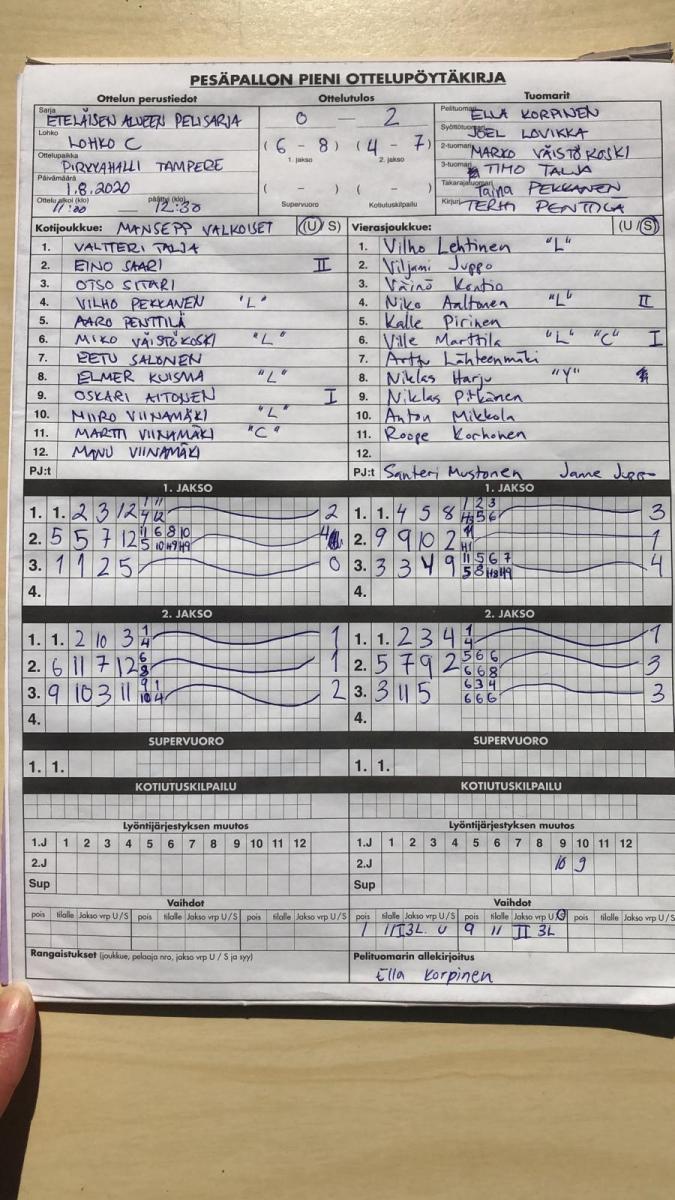 PESÄPALLON PIENI OTTELUPÖYTÄKIRJA
Ottelun perustiedot
Sarja
ETELÄISEN ALUEEN PELISARJA
Lohko
LOHKO C
Ottelupaikka
PIRKKAHALLI TAMPERE
Päivämäärä
1.8.2020
Ottelu alkoi (klo) päättyi (klo)
11:00 — 12:30
Ottelutulos
0 — 2
(6 - 8) (4 - 7)
1. jakso 2. jakso
( - ) ( - )
Supervuoro Kotiutuskilpailu
Tuomarit
Pelituomari ELLA KORPINEN
Syöttötuomari JOEL LOVIKKA
2-tuomari MARKO VÄISTÖKOSKI
3-tuomari TIMO TALJA
Takarajatuomari Taina PEKKANEN
Kirjuri TERHI PENTTILÄ
Kotijoukkue: MANSEPP VALKOISET (U / S)
1. VALTTERI TALJA
2. EINO SAARI II
3. OTSO SITARI
4. VILHO PEKKANEN "L"
5. AARO PENTTILÄ
6. MIKO VÄISTÖKOSKI "L"
7. EETU SALONEN
8. ELMER KUISMA "L"
9. OSKARI AITONEN I
10. MIIRO VIINAMÄKI "L"
11. MARTTI VIINAMÄKI "C"
12. MANU VIINAMÄKI
PJ:t
Vierasjoukkue: (U / S)
1. Vilho Lehtinen "L"
2. Viljami Juppo
3. Väinö Kontio
4. Niko Aaltonen "L" II
5. Kalle Pirinen
6. Ville Marttila "L" "C" I
7. Arttu Lähteenmäki
8. Niklas Harju "Y"
9. Niklas Pitkänen
10. Anton Mikkola
11. Roope Korhonen
12.
PJ:t Santeri Mustonen Janne Juppo
1. JAKSO
1. 1. 2 3 12 2
2. 5 5 7 12 4
3. 1 1 2 5 0
4.
1. JAKSO
1. 1. 4 5 8 3
2. 9 9 10 2 1
3. 3 3 4 9 4
4.
2. JAKSO
1. 1. 2 10 3 1 4 1
2. 6 11 7 12 6 8 1
3. 9 10 3 11 9 1 10 4 2
4.
2. JAKSO
1. 1. 2 3 4 1 4 1
2. 5 7 9 2 5 6 6 6 6 8 3
3. 3 11 5 6 3 4 6 6 6 3
4.
SUPERVUORO
1. 1.
SUPERVUORO
1. 1.
KOTIUTUSKILPAILU
KOTIUTUSKILPAILU
Lyöntijärjestyksen muutos
1.J 1 2 3 4 5 6 7 8 9 10 11 12
2.J
Sup
Lyöntijärjestyksen muutos
1.J 1 2 3 4 5 6 7 8 9 10 11 12
2.J 10 9
Sup
Vaihdot
pois tilalle Jakso vrp U / S pois tilalle Jakso vrp U / S pois tilalle Jakso vrp U / S
Vaihdot
pois tilalle Jakso vrp U / S pois tilalle Jakso vrp U / S pois tilalle Jakso vrp U / S
1 11 I 3L U 9 11 II 3L
Rangaistukset (joukkue, pelaaja nro, jakso vrp U / S ja syy)
Pelituomarin allekirjoitus
Ella Korpinen